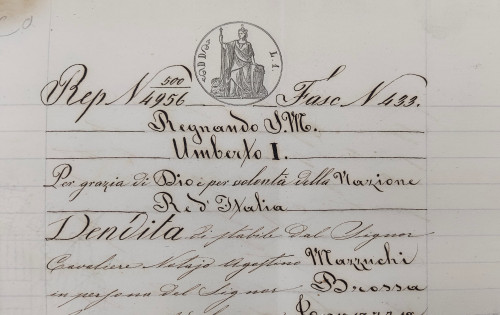 Co
L. 1.
Rep N 500/4956 Fasc N 433.
Regnando S. M.
Umberto I.
Per grazia di Dio e per volontà della Nazione
Re d'Italia
Vendita di stabile dal Signor
Cavaliere Notajo Agostino Mazzuchi
in persona del Signor Brossa